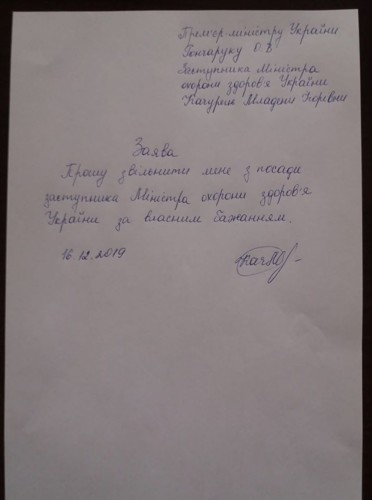 Прем'єр-міністру України
Гончаруку О.В
Заступника Міністра
охорони здоров'я України
Качурець Младени Юріївни
Заява
Прошу звільнити мене з посади
заступника Міністра охорони здоров'я
України за власним бажанням.
16.12.2019